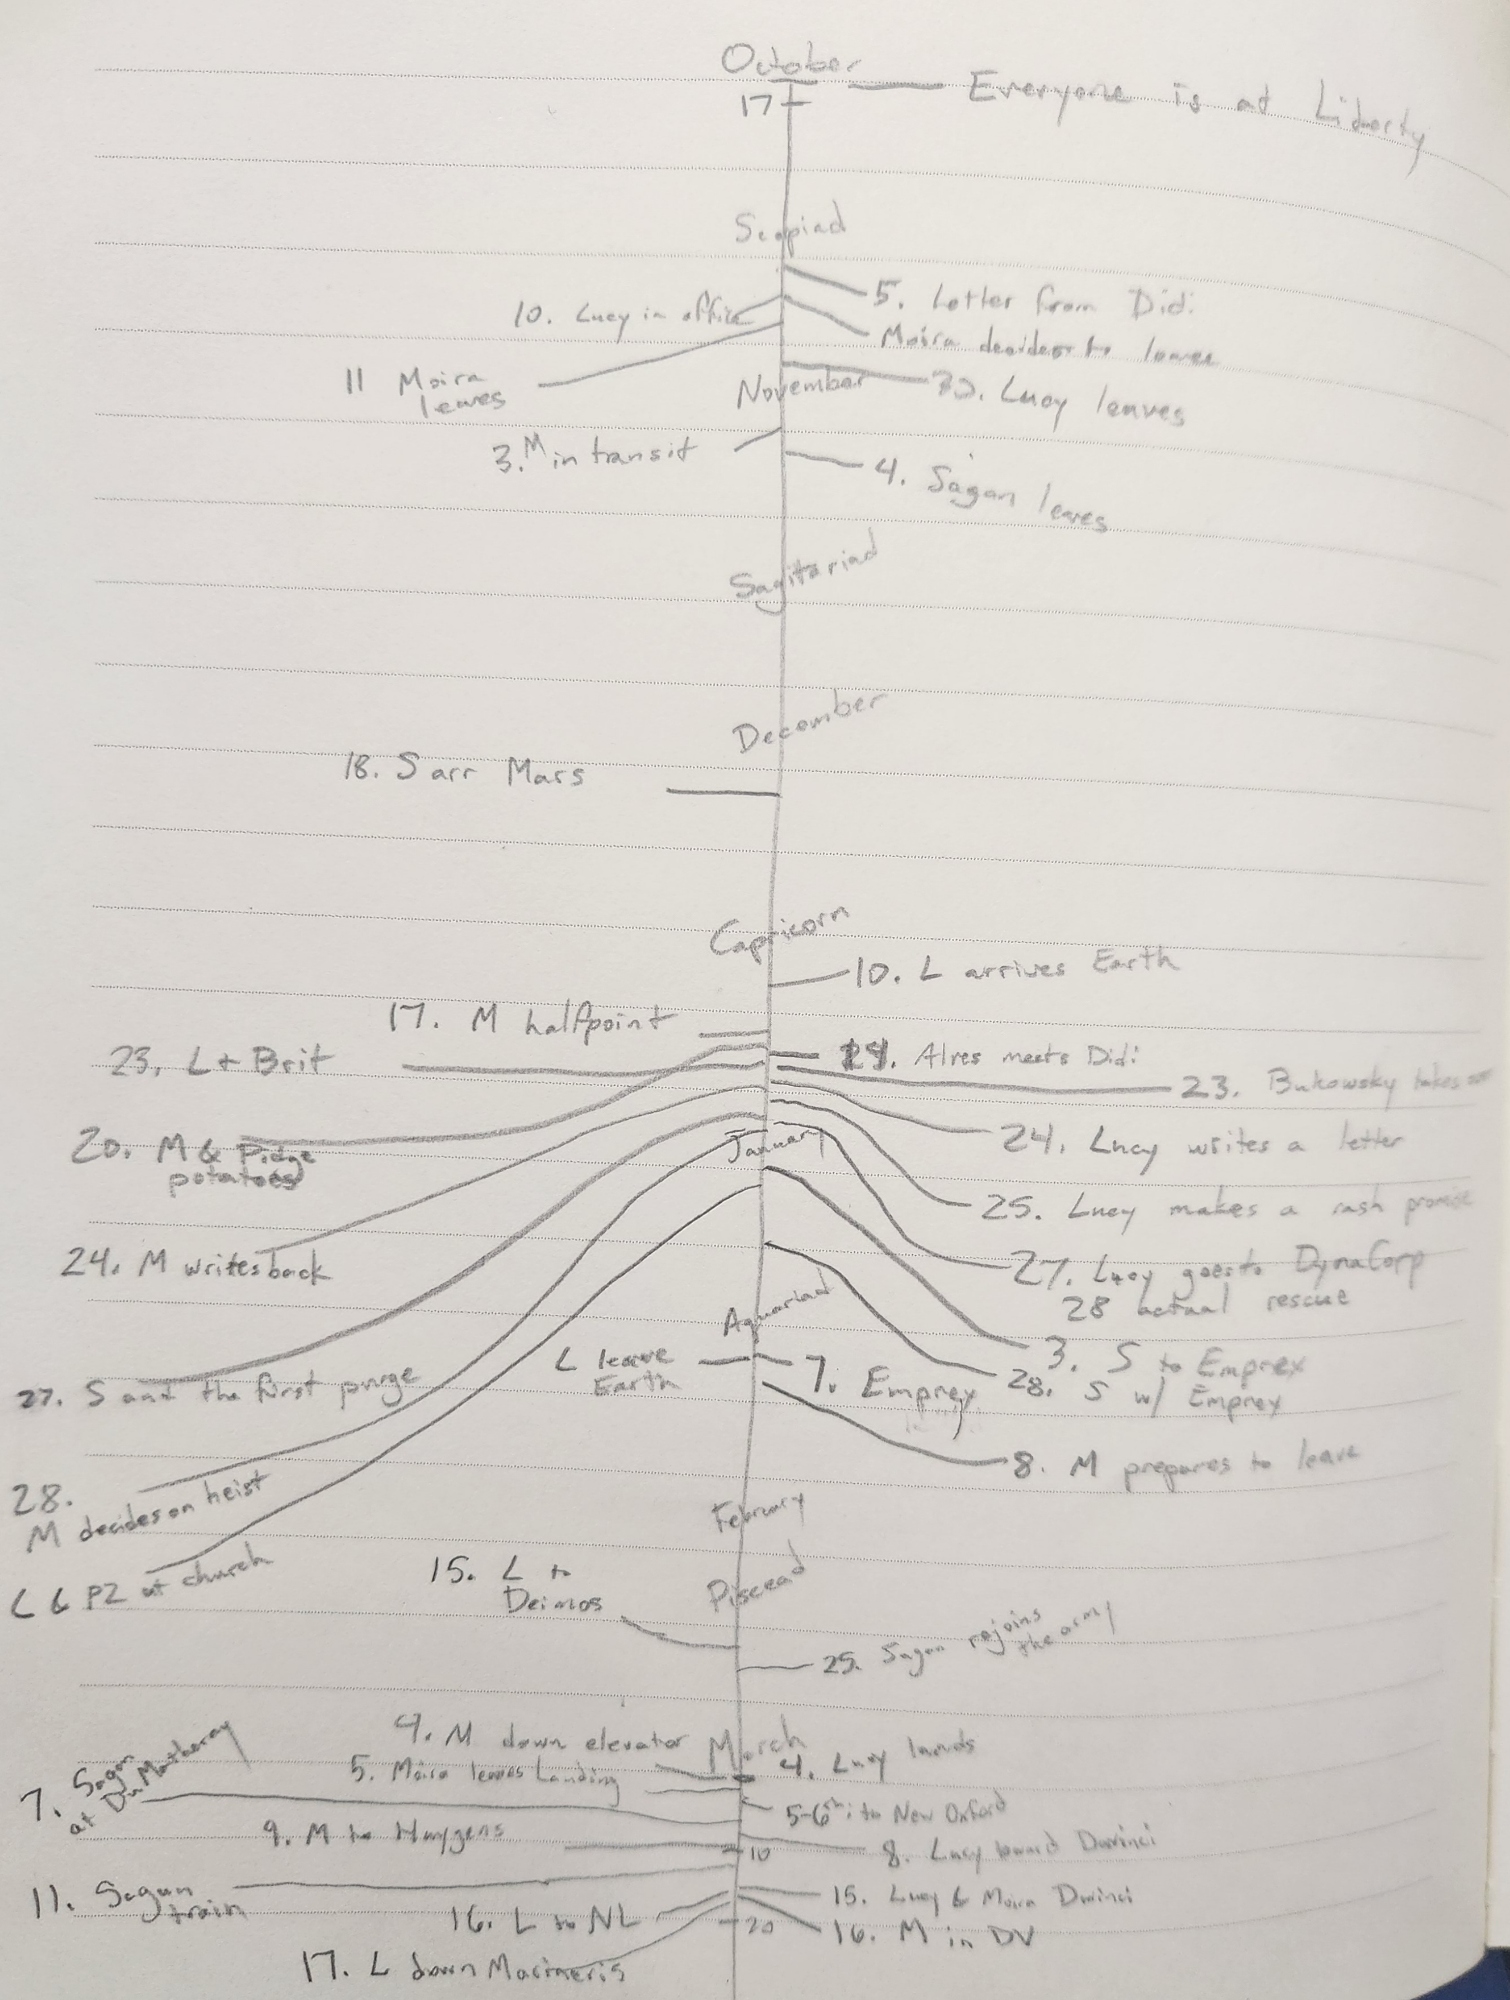 October
Everyone is at Liberty
17
Scopiad
5. Letter from Didi
10. Lucy in office
Moira decides to leave
11 Moira
leaves
November
Lucy leaves
3. M in transit
4. Sagan leaves
Sagitariad
December
18. S arr Mars
Capricorn
10. L arrives Earth
17. M halfpoint
Alres meets Didi
23. L + Brit
23. Bukowsky takes
20. M & Pidge
potatoes
24. Lucy writes a letter
January
25. Lucy makes a rash promise
24. M writes back
27. Lucy goes to DynaCorp
28 actual rescue
Aquariad
3. S to Emprex
L leave
Earth
7. Emprex
28. S w/ Emprex
27. S and the first purge
8. M prepares to leave
28.
M decides on heist
February
L & PZ at church
15. L to
Deimos
Piscead
25. Sagan rejoins
the army
4. M down elevator
March
4. Lucy lands
5. Moira leaves Landing
7. Sagan
at
5-6th: to New Oxford
9. M to Huygens
10
8. Lucy toward Davinci
11. Sagan
train
15. Lucy & Moira Davinci
16. L to NL
20
16. M in DV
17. L down Marineris